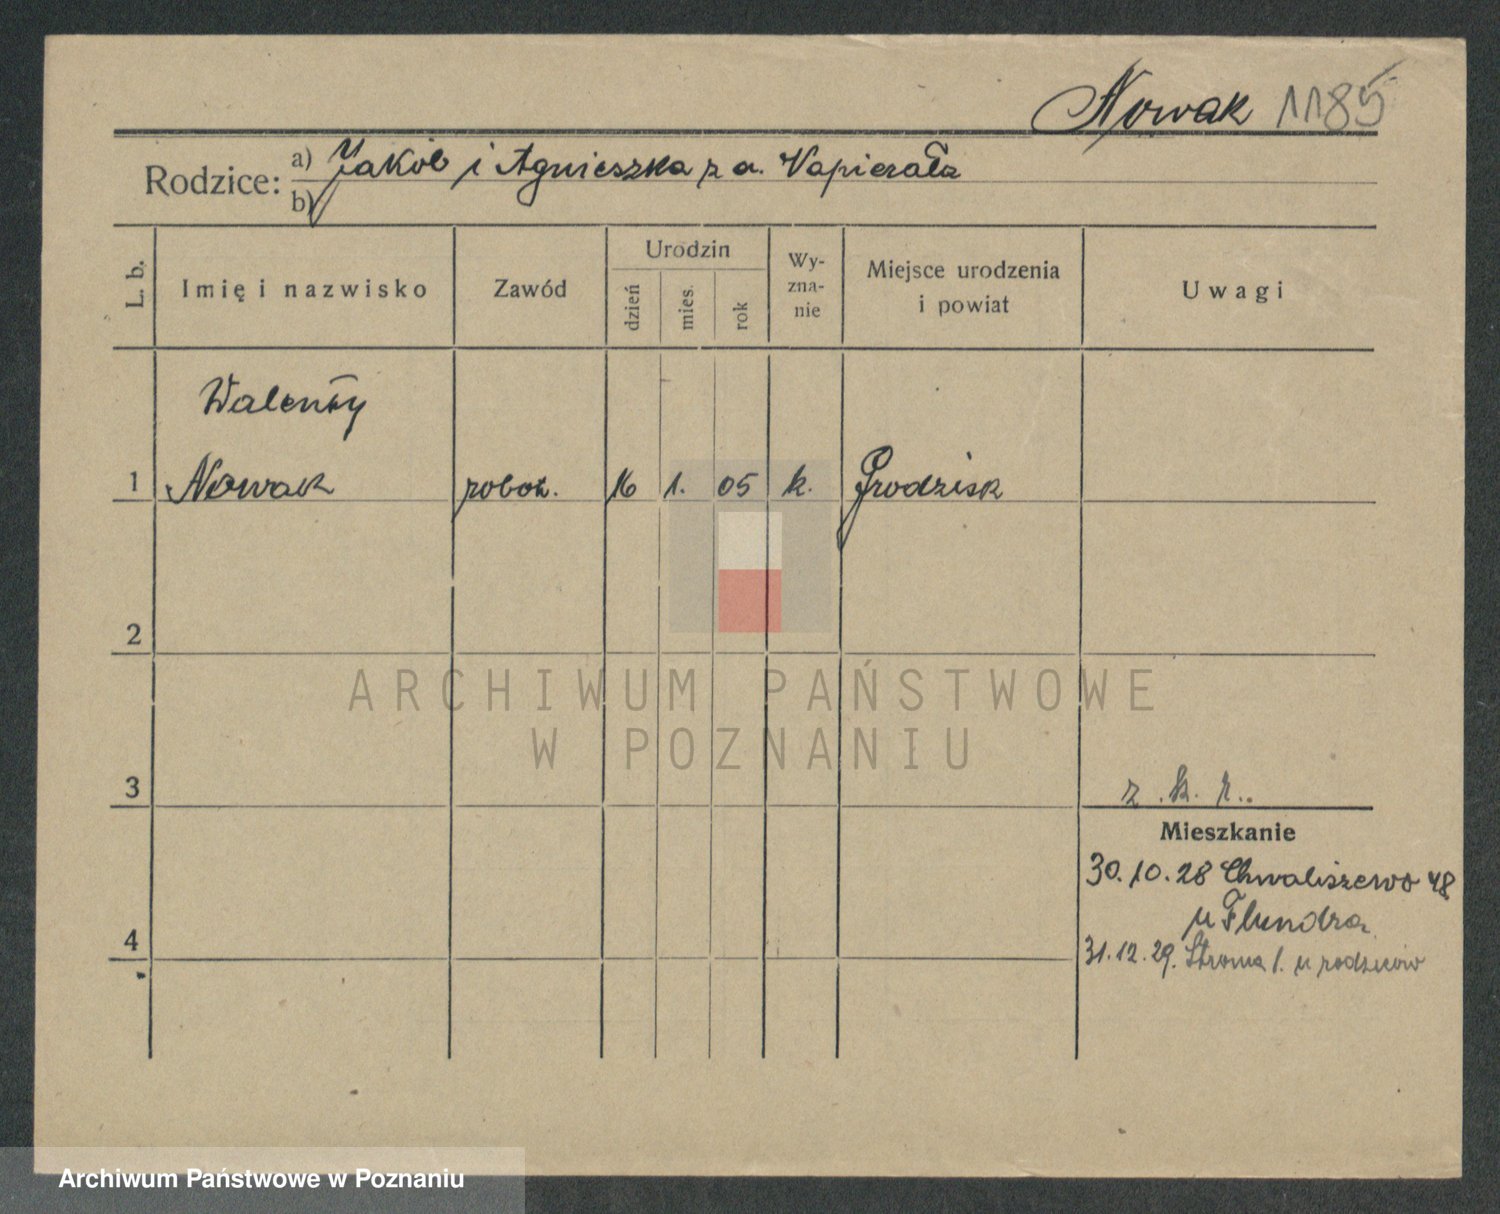 Nowak 1185
Rodzice: a) Jakób i Agnieszka z d. Napierała
b)
L. b.
Imię i nazwisko
Zawód
Urodzin
dzień
mies.
rok
Wy-
zna-
nie
Miejsce urodzenia
i powiat
Uwagi
Walenty
1 Nowak robotn. 16 1. 05 k. Grodzisk
2
3
z. k. r.
Mieszkanie
30.10.28 Chwaliszewo 48
u Flundra
4
31.12.29. Stroma 1. u rodziców
ARCHIWUM PAŃSTWOWE
W POZNANIU
Archiwum Państwowe w Poznaniu